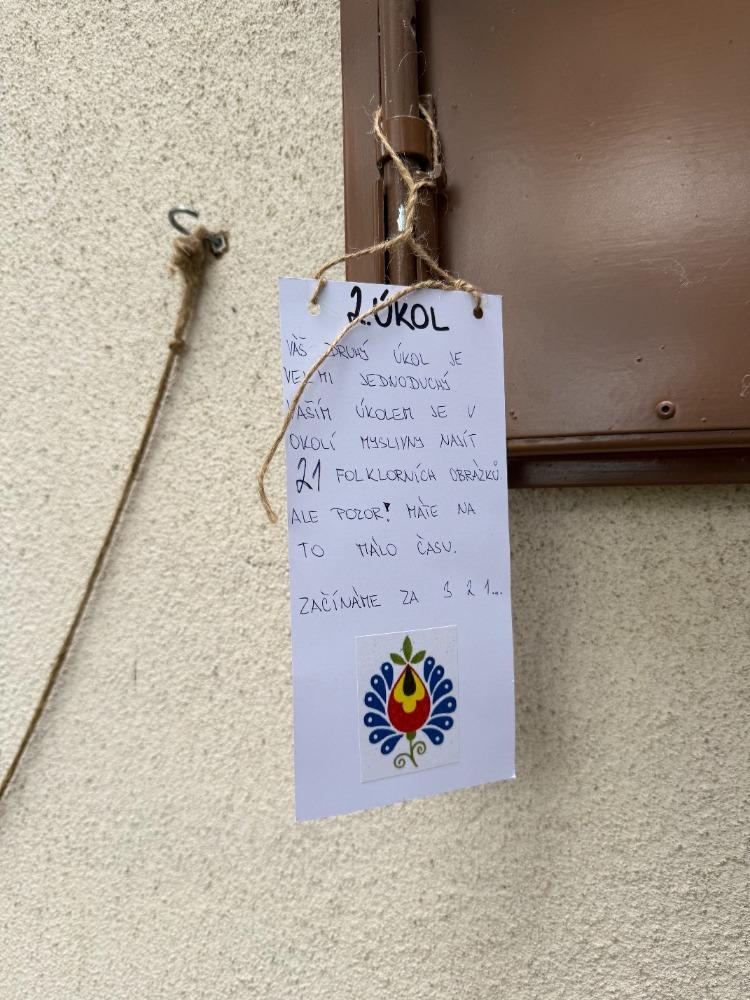 2. ÚKOL
VÁŠ DRUHÝ ÚKOL JE
VELMI JEDNODUCHÝ
VAŠÍM ÚKOLEM JE V
OKOLÍ MYSLIVNY NAJÍT
21 FOLKLORNÍCH OBRÁZKŮ
ALE POZOR! MÁTE NA
TO MÁLO ČASU.
ZAČÍNÁME ZA 3 2 1...